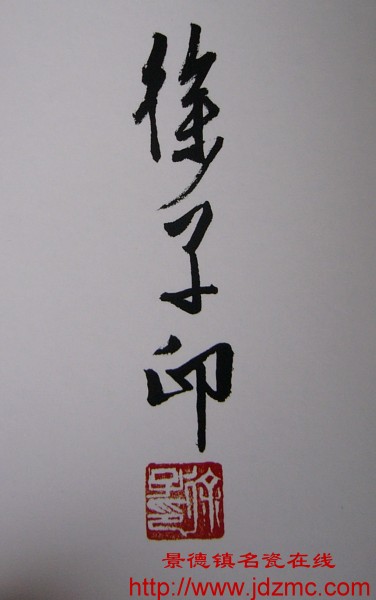 徐子印
徐子印
景德镇名瓷在线
http://www.jdzmc.com